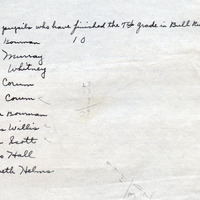 pupils who have finished the 7th grade in Bull Ru
Bowman 10
Murray
Whitney
Corum
Corum
Bowman
Willis
Scott
Hall
eth Helms